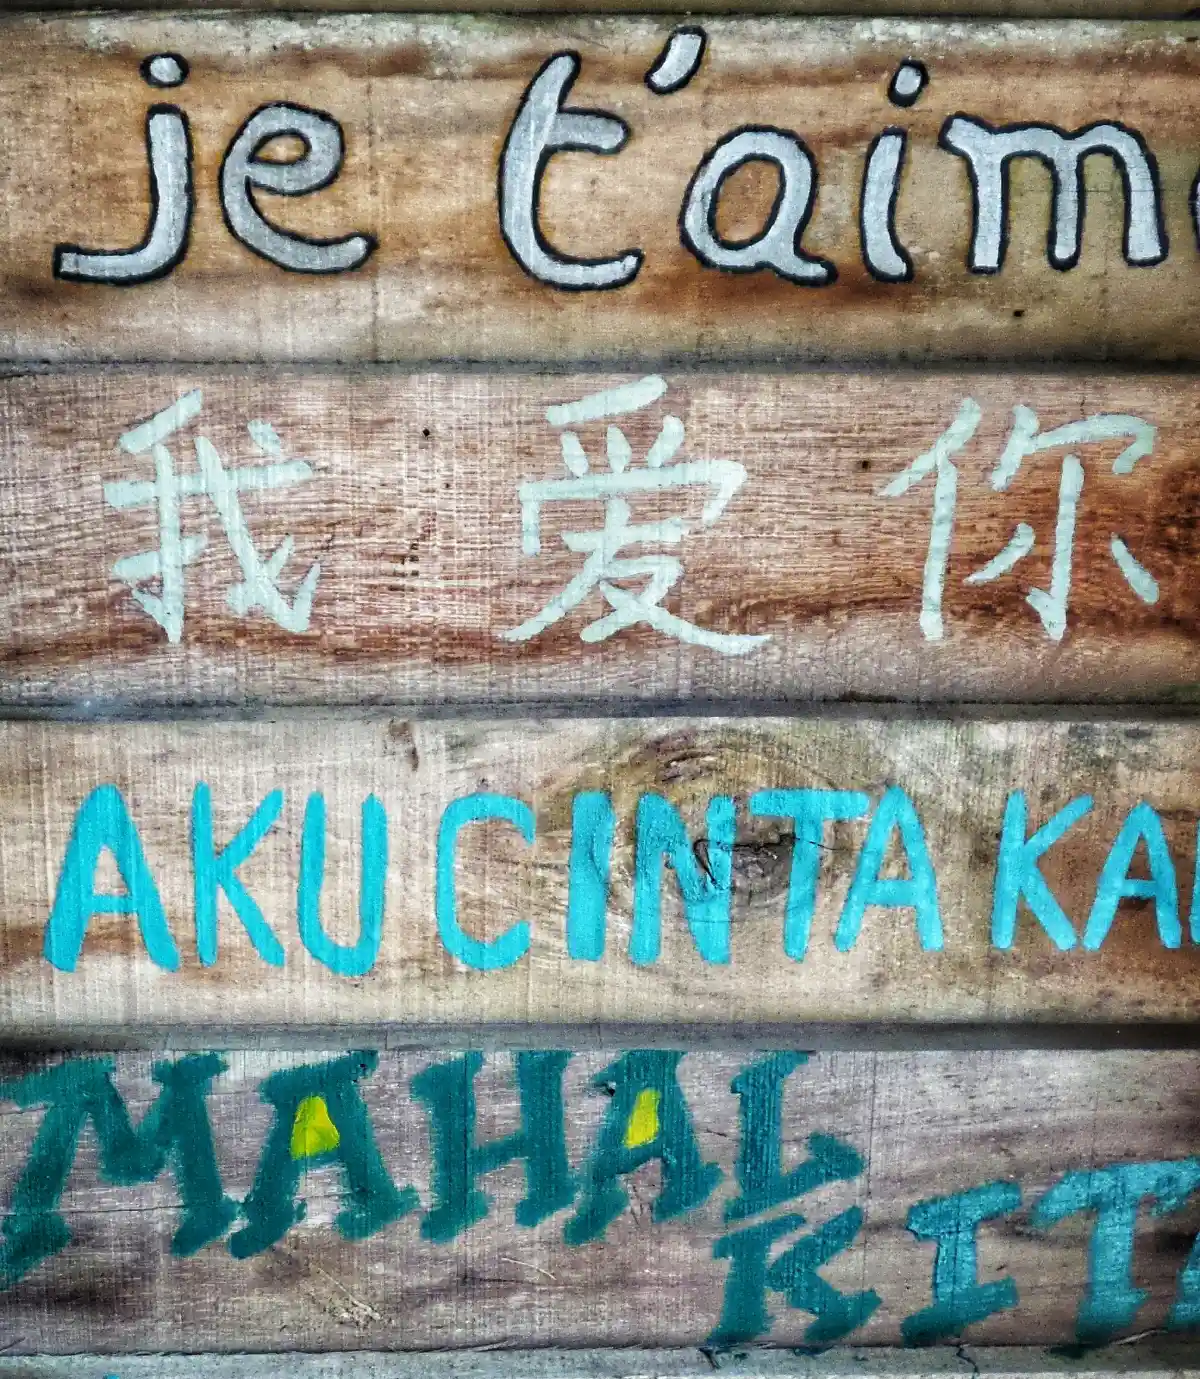 je t'aime
我爱你
AKU CINTA KA
MAHAL
KITA